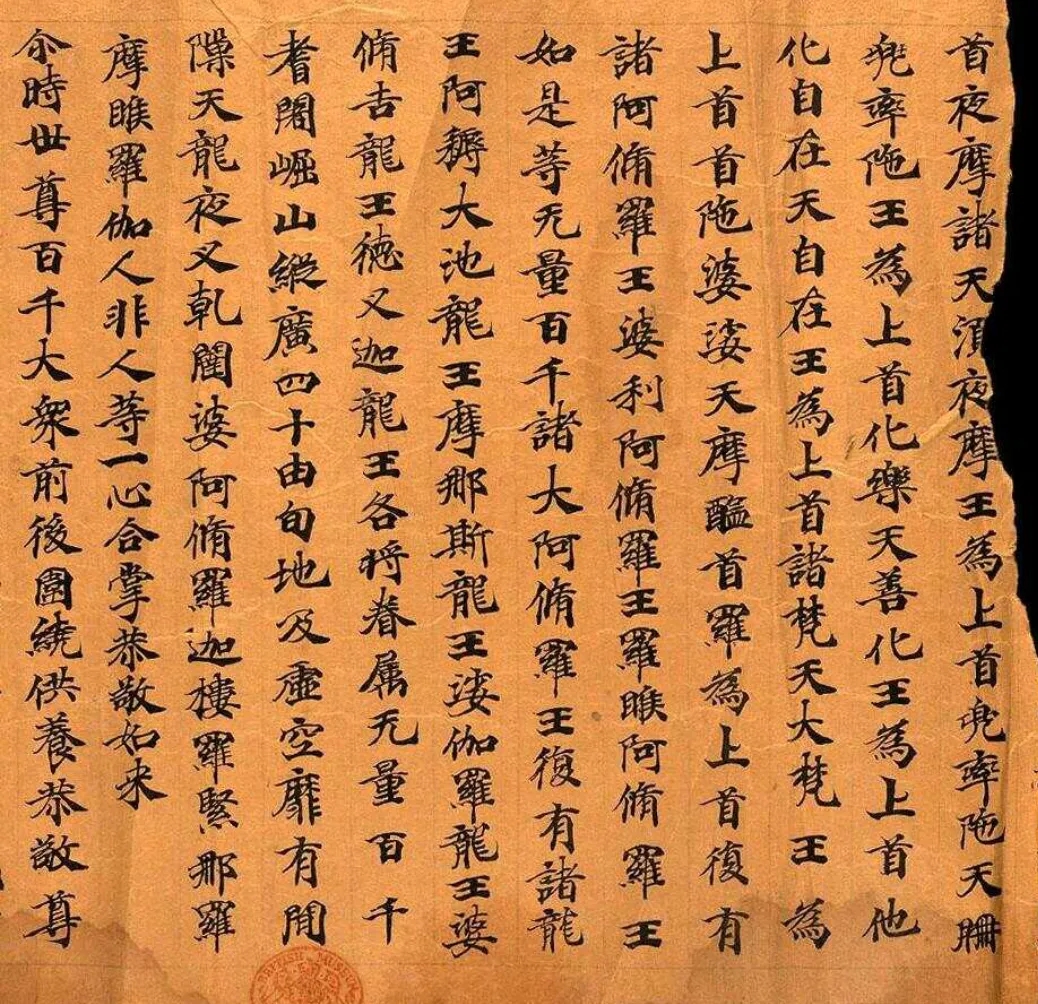 首夜摩諸天須夜摩王為上首兜率陁天珊
兜率陁王為上首化樂天善化王為上首他
化自在天自在王為上首諸梵天大梵王為
上首首陁婆娑天摩醯首羅為上首復有
諸阿脩羅王婆利阿脩羅王羅睺阿脩羅王
如是等无量百千諸大阿脩羅王復有諸龍
王阿耨大池龍王摩那斯龍王娑伽羅龍王婆
脩吉龍王德叉迦龍王各將眷属无量百千
耆闍崛山縱廣四十由旬地及虛空靡有間
隟天龍夜叉乹闥婆阿脩羅迦樓羅緊那羅
摩睺羅伽人非人等一心合掌恭敬如来
尒時世尊百千大衆前後圍繞供養恭敬尊